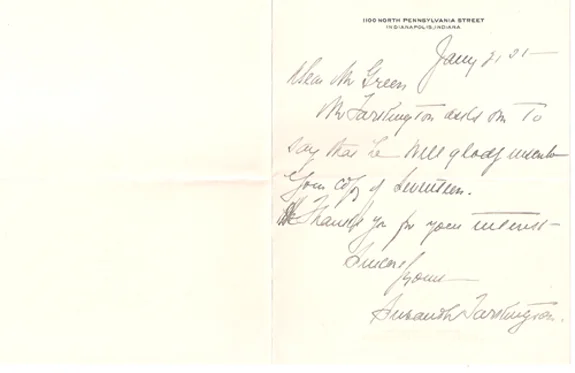 1100 NORTH PENNSYLVANIA STREET
INDIANAPOLIS, INDIANA
Jany 2, 21
Dear Mr Green
Mr Tarkington asks me to
say that he will gladly
your copy of Seventeen.
He Thanks you for your interest
Sincerely yours
Susanah Tarkington.